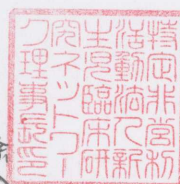 特定非営利
活動法人新
生児臨床研
究ネットワー
ク理事長印